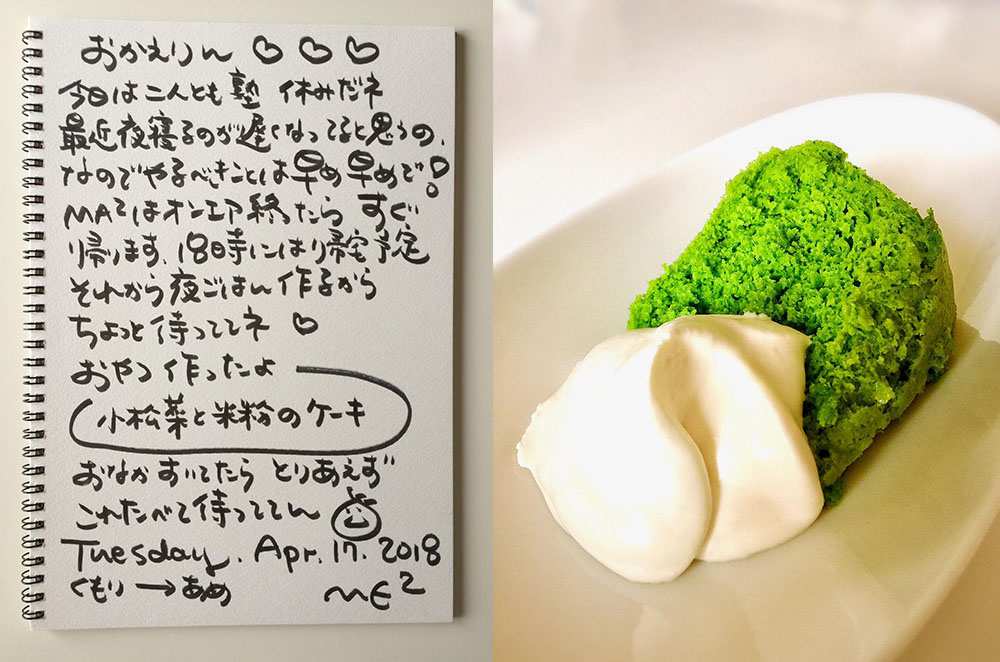 おかえりん ♡ ♡ ♡
今日は二人とも塾 休みだネ
最近夜寝るのが遅くなってると思うの、
なのでやるべきことは早め早めで!
MA²はオンエア終ったら すぐ
帰ります、18時には帰宅予定
それから夜ごはん作るから
ちょっと待っててネ ♡
おやつ 作ったよ
小松菜と米粉のケーキ
おなかすいてたら とりあえず
これたべて待っててん
Tuesday. Apr. 17. 2018
くもり → あめ